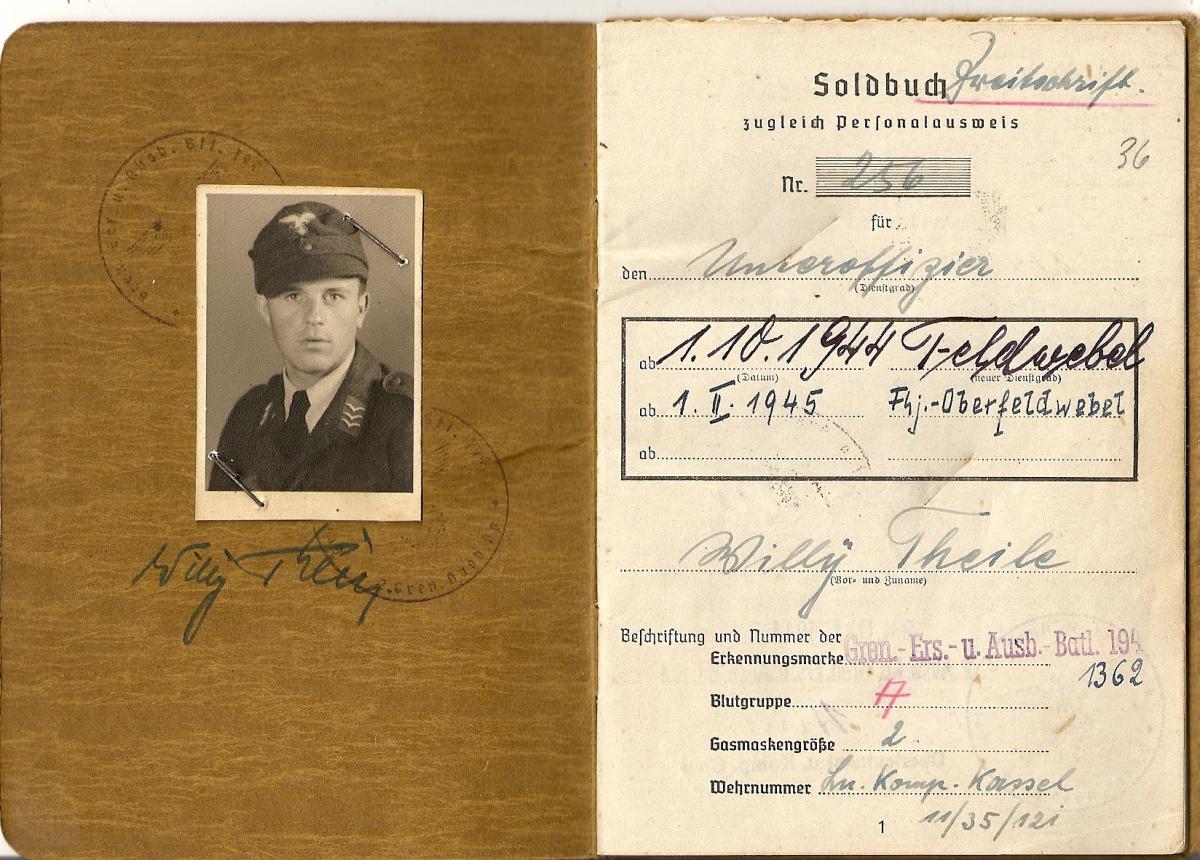 Willy Theile
Soldbuch Zweitschrift.
zugleich Personalausweis
36
Nr. 256
für
den Unteroffizier
(Dienstgrad)
ab 1.10.1944 Feldwebel
(Datum) (neuer Dienstgrad)
ab 1. II. 1945 Fhj.-Oberfeldwebel
ab
Willy Theile
(Vor- und Zuname)
Beschriftung und Nummer der
Erkennungsmarke Gren.-Ers.-u. Ausb.-Batl. 194
1362
Blutgruppe A
Gasmaskengröße 2
Wehrnummer Ln. Komp. Kassel
11/35/121
1